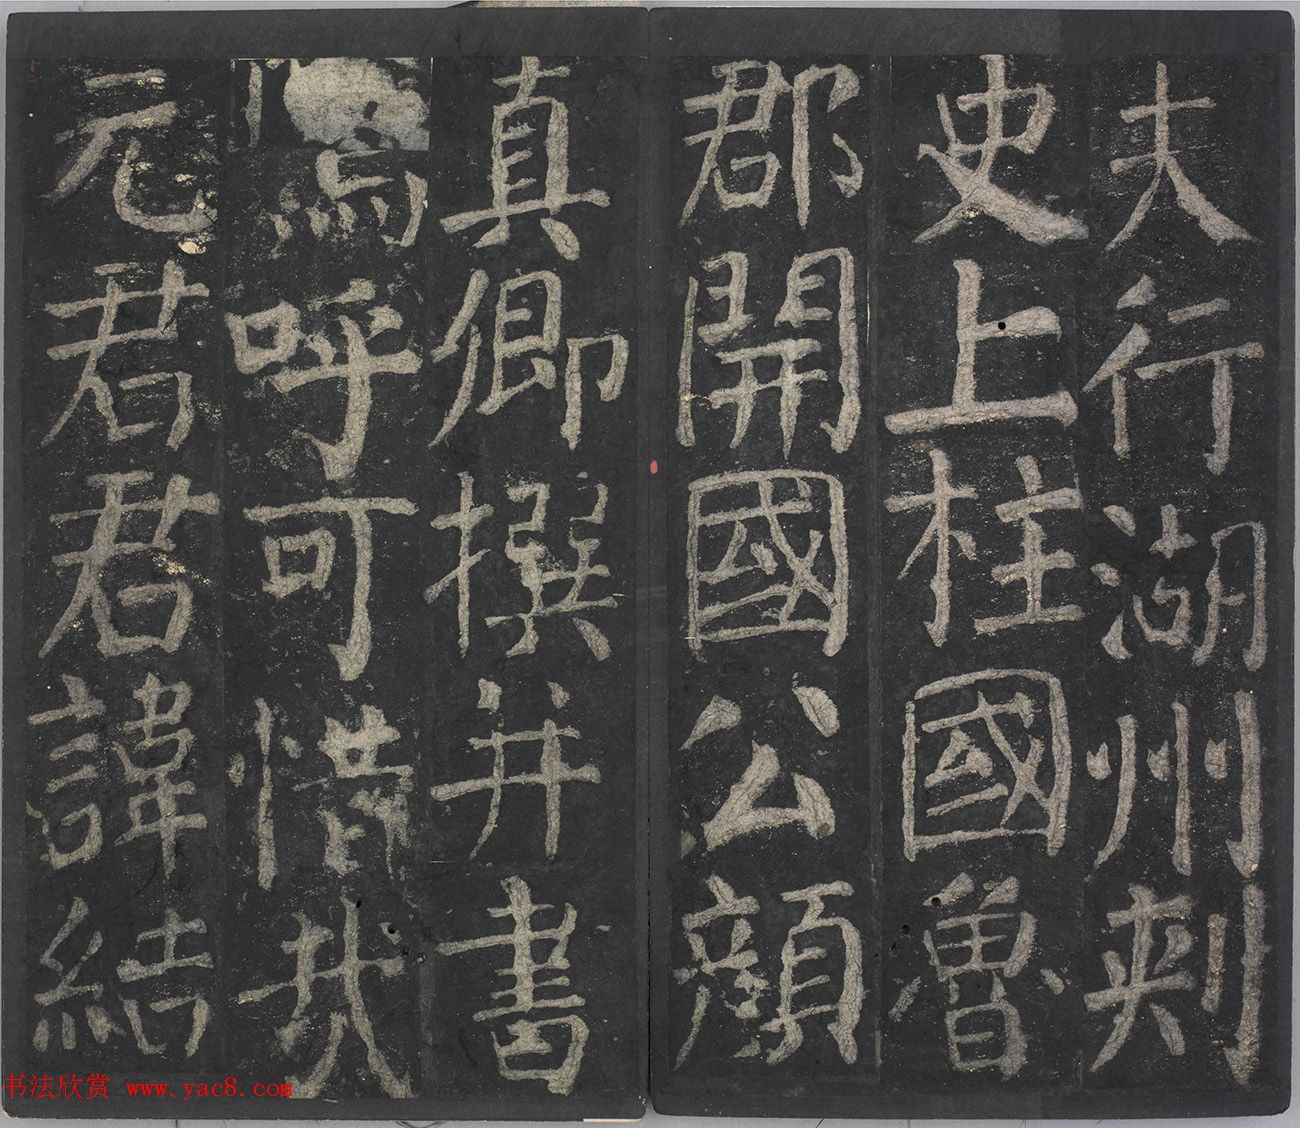 夫行湖州刺
史上柱國魯
郡開國公顏
真卿撰并書
嗚呼可惜哉
元君君諱結
书法欣赏 www.yac8.com